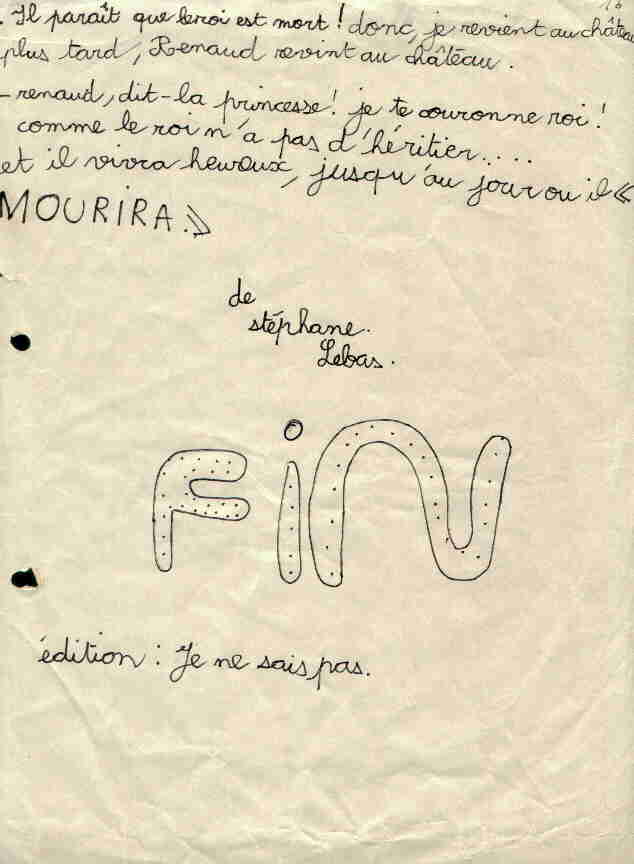 . Il paraît que le roi est mort ! donc, je revient au château
plus tard, Renaud revint au château.
– renaud, dit-la princesse ! je te couronne roi !
comme le roi n'a pas d'héritier....
et il vivra heureux, jusqu'au jour ou il «
MOURIRA.»
de
stéphane.
Lebas.
FiN
édition : Je ne sais pas.